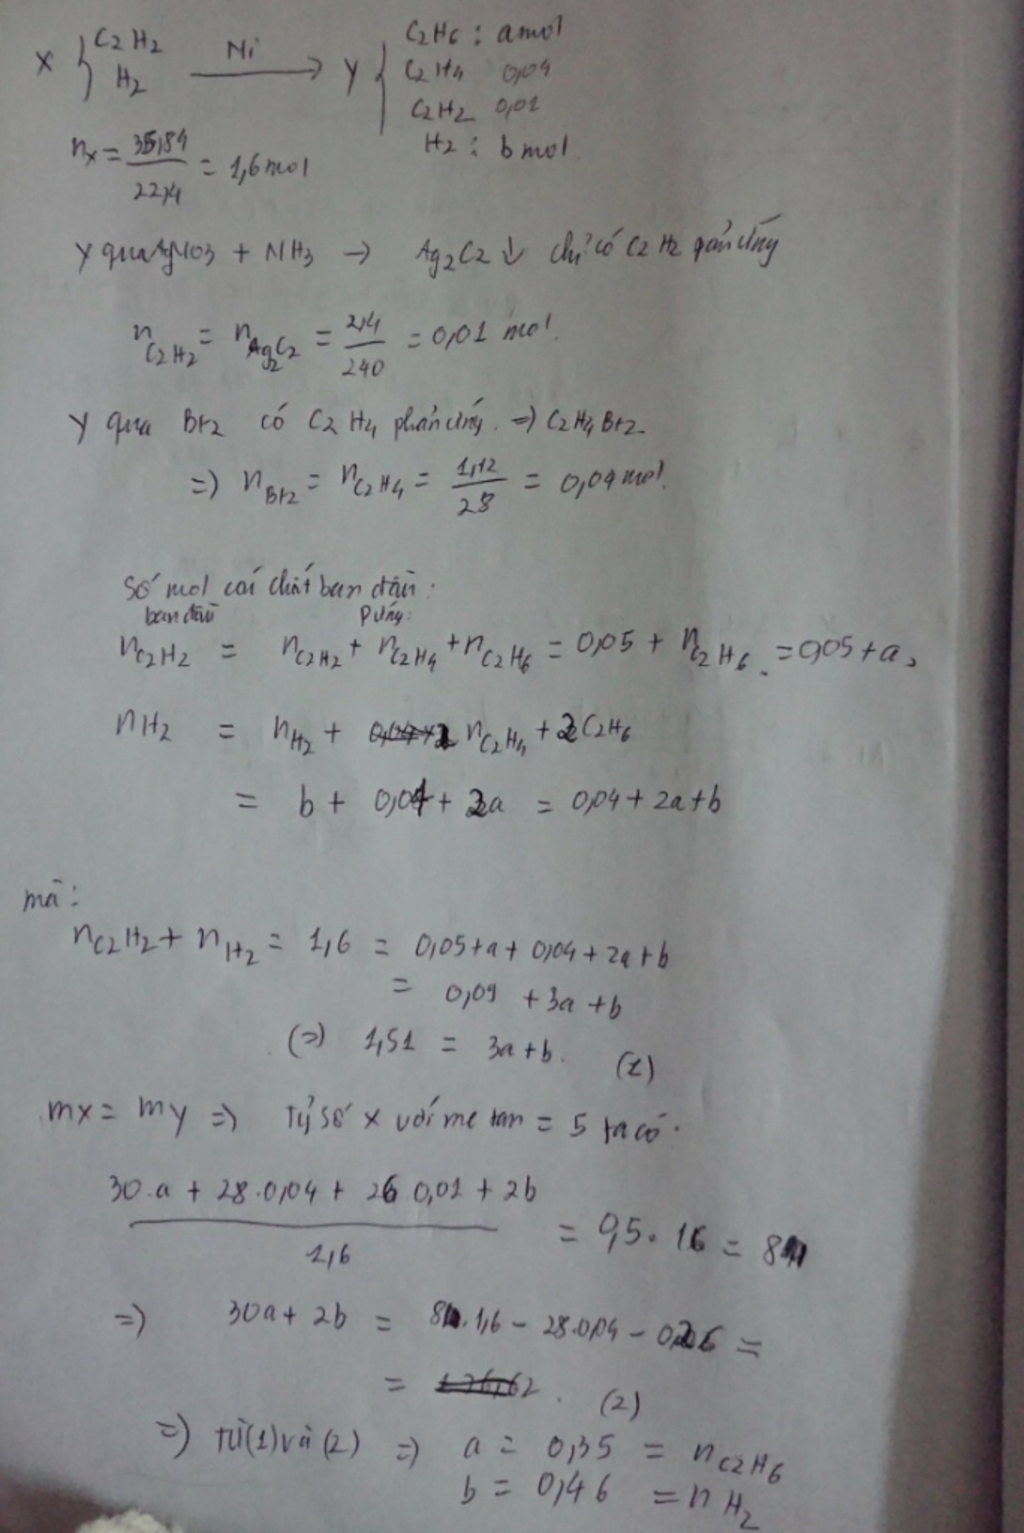 X { C2H2 H2 —Ni→ Y { C2H6 : a mol
C2H4 0,04
C2H2 0,01
H2 : b mol.
nX = 35,84 / 22,4 = 1,6 mol
Y qua AgNO3 + NH3 → Ag2C2 ↓ chỉ có C2H2 phản ứng
nC2H2 = nAg2C2 = 2,4 / 240 = 0,01 mol.
Y qua Br2 có C2H4 phản ứng. => C2H4Br2.
=> nBr2 = nC2H4 = 1,12 / 28 = 0,04 mol.
Số mol các chất ban đầu:
ban đầu P ứng:
nC2H2 = nC2H2 + nC2H4 + nC2H6 = 0,05 + nC2H6. = 0,05 + a,
nH2 = nH2 + nC2H4 + 2C2H6
= b + 0,04 + 2a = 0,04 + 2a + b
mà:
nC2H2 + nH2 = 1,6 = 0,05 + a + 0,04 + 2a + b
= 0,09 + 3a + b
(=) 1,51 = 3a + b. (1)
mX = mY => Tỷ số X với me tan = 5 ta có.
30.a + 28.0,04 + 26 0,01 + 2b / 1,6 = 0,5. 16 = 8
=> 30a + 2b = 8.1,6 - 28.0,04 - 0,26 =
= . (2)
=> Từ (1) và (2) => a = 0,35 = nC2H6
b = 0,46 = nH2